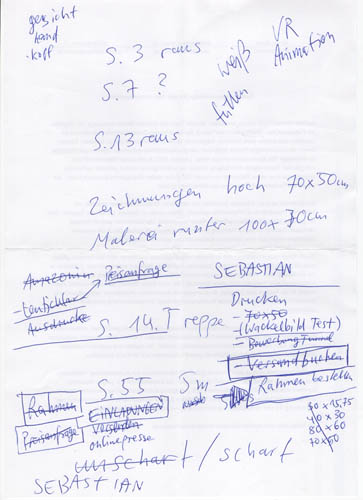 gesicht
hand
kopf
S. 3 raus
weiß
VR
Animation
S. 7 ?
füllen
S. 13 raus
Zeichnungen hoch 70x50cm
Malerei runter 100x70cm
Preisanfrage
SEBASTIAN
Ausdrucke
Drucken
- 70x50
(Wackelbild Test)
S. 14. Treppe
- Bewerbung
- Versand buchen
Rahmen
S. 55
5m
Rahmen bestellen
EINLADUNGEN
Preisanfrage
versenden
onlinepresse
40 x 30
80 x 60
70 x 50
unscharf / scharf
SEBASTIAN